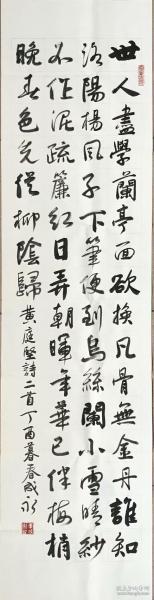 世人盡學蘭亭面欲換凡骨無金丹誰知
洛陽楊風子下筆便到烏絲闌小雪晴沙
不作泥疏簾紅日弄朝暉年華已伴梅梢
晚春色先從柳陰歸 黃庭堅詩二首丁酉暮春